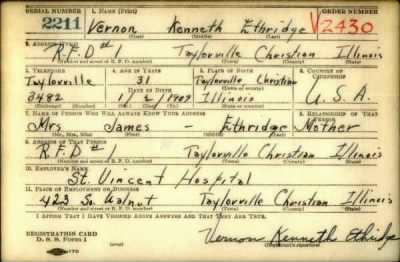 SERIAL NUMBER 1. NAME (Print) ORDER NUMBER
2211 Vernon Kenneth Ethridge V2430
(First) (Middle) (Last)
2. ADDRESS (Print)
R.F.D #1 Taylorville Christian Illinois
(Number and street or R. F. D. number) (Town) (County) (State)
3. TELEPHONE 4. AGE IN YEARS 5. PLACE OF BIRTH 6. COUNTRY OF CITIZENSHIP
Taylorville 31 Taylorville Christian
DATE OF BIRTH (Town or county)
3482 1/2/1909 Illinois U.S.A.
(Mo.) (Day) (Yr.) (State or country)
7. NAME OF PERSON WHO WILL ALWAYS KNOW YOUR ADDRESS 8. RELATIONSHIP OF THAT PERSON
Mrs James - Ethridge Mother
(Mr., Mrs., Miss) (First) (Middle) (Last)
9. ADDRESS OF THAT PERSON
R.F.D #1 Taylorville Christian Illinois
(Number and street or R. F. D. number) (Town) (County) (State)
10. EMPLOYER'S NAME
St. Vincent Hospital
11. PLACE OF EMPLOYMENT OR BUSINESS
423 So. Walnut Taylorville Christian Illinois
(Number and street or R. F. D. number) (Town) (County) (State)
I AFFIRM THAT I HAVE VERIFIED ABOVE ANSWERS AND THAT THEY ARE TRUE.
REGISTRATION CARD
D. S. S. Form 1 Vernon Kenneth Ethridge
(Registrant's signature)